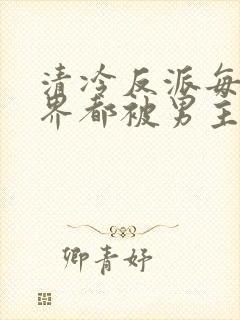 清冷反派每
界都被男主
卿青妤